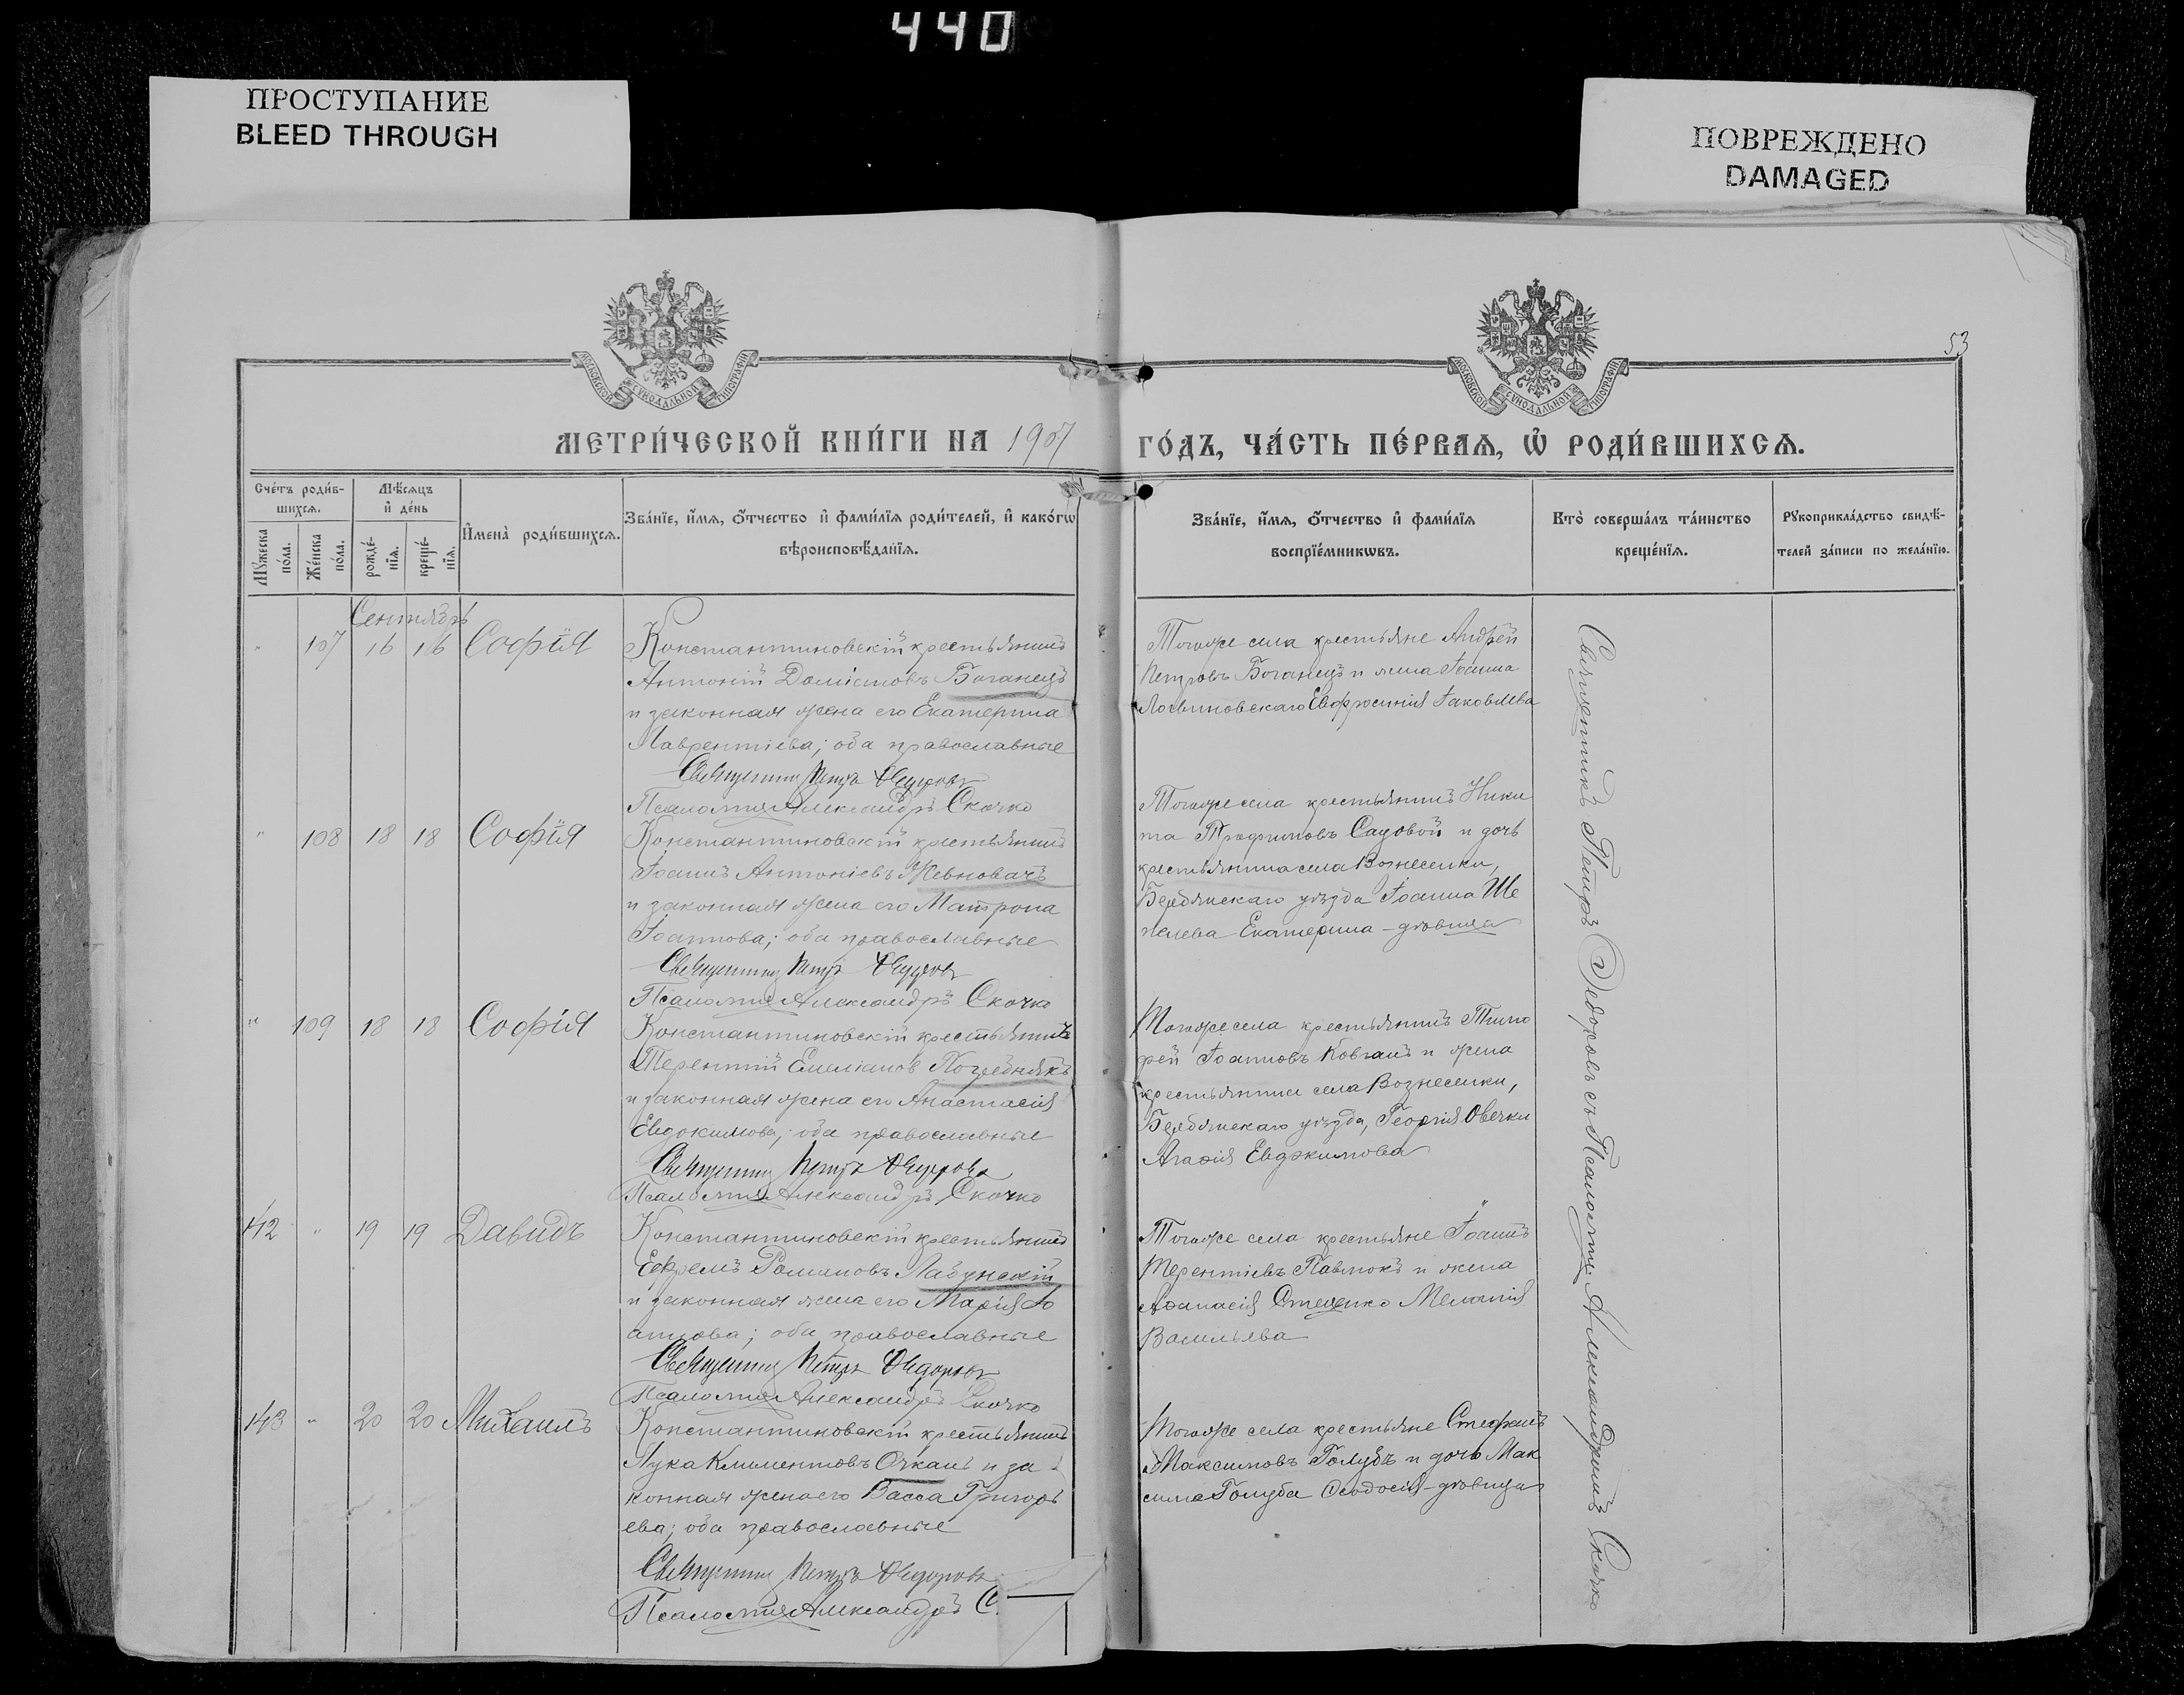 440
ПРОСТУПАНИЕ
BLEED THROUGH
ПОВРЕЖДЕНО
DAMAGED
53
МОСКОВСКОЙ СѴНОДАЛЬНОЙ ТИПОГРАФІИ
МОСКОВСКОЙ СѴНОДАЛЬНОЙ ТИПОГРАФІИ
МЕТРИ́ЧЕСКОЙ КНИ́ГИ НА 1907
ГО́ДЪ, ЧА́СТЬ ПЕ́РВАѦ, Ѡ҆ РОДИ́ВШИХСѦ.
Сче́тъ роди́в-
шихсѧ.
Мꙋ́жеска
по́ла.
Же́нска
по́ла.
Мѣ́сѧцъ
и҆ де́нь
рожде́-
нїѧ.
креще́-
нїѧ.
И҆мена̀ роди́вшихсѧ.
Зва́нїе, и҆́мѧ, ѻ҆́тчество и҆ фами́лїѧ роди́телей, и҆ како́гѡ
вѣроисповѣ́данїѧ.
Зва́нїе, и҆́мѧ, ѻ҆́тчество и҆ фами́лїѧ
воспрїе́мникѡвъ.
Кто̀ соверша́лъ та́инство
креще́нїѧ.
Рꙋкоприкла́дство свидѣ́-
телей за́писи по жела́нїю.
Сентябрь
" 107 16 16 Софія
Константиновскій крестьянинъ
Антоній Долѣстовъ Боганецъ
и законная жена его Екатерина
Лаврентіева; оба православные
Священникъ Петръ Ѳедоровъ
Псаломщ. Александръ Скочко
Тогоже села крестьяне Андрей
Петровъ Боганецъ и жена Іоанна
Логвиновскаго Евфросинія Іаковлева
" 108 18 18 Софія
Константиновскій крестьянинъ
Іоаннъ Антоніевъ Жевновачъ
и законная жена его Матрона
Іоаннова; оба православные
Священникъ Петръ Ѳедоровъ
Псаломщ. Александръ Скочко
Тогоже села крестьянинъ Ники
та Трофимовъ Садовой и дочь
крестьянина села Вознесенки,
Бердянскаго уѣзда Іоанна Ше
пелева Екатерина - дѣвица
" 109 18 18 Софія
Константиновскій крестьянинъ
Терентій Емеліановъ Погребнякъ
и законная жена его Анастасія
Евдокимова; оба православные
Священникъ Петръ Ѳедоровъ
Псаломщ. Александръ Скочко
Тогоже села крестьянинъ Тимо
фей Іоанновъ Ковганъ и жена
крестьянина села Вознесенки,
Бердянскаго уѣзда, Георгія Овечки
Агафія Евдокимова
142 " 19 19 Давидъ
Константиновскій крестьянинъ
Ефремъ Романовъ Лабунскій
и законная жена его Марія Іо
аннова; оба православные
Священникъ Петръ Ѳедоровъ
Псаломщ. Александръ Скочко
Тогоже села крестьяне Іоаннъ
Терентіевъ Павлюкъ и жена
Аѳанасія Стеценко Меланія
Васильева
143 " 20 20 Михаилъ
Константиновскій крестьянинъ
Лука Климентовъ Очкань и за
конная жена его Васса Григорь
ева; оба православные
Священникъ Петръ Ѳедоровъ
Псаломщ. Александръ С
Тогоже села крестьяне Стефанъ
Максимовъ Голубъ и дочь Мак
сима Голуба Ѳеодосія - дѣвица
Священникъ Петръ Ѳедоровъ съ Псаломщ. Александромъ Скочко